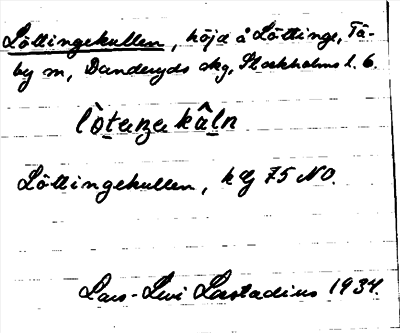 Löttingekullen, höjd å Löttinge, Tä-
by sn, Danderyds skg, Stockholms l. 6.
lò̀taŋakâln
Löttingekullen, kg 75 NO.
Lars-Levi Læstadius 1934.